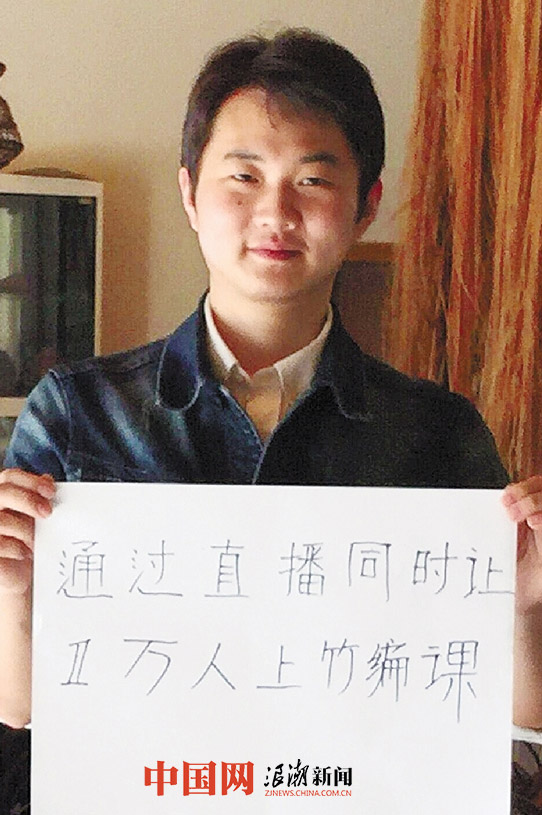 通过直播同时让
1万人上竹编课
中国网 浪潮新闻
ZJNEWS.CHINA.COM.CN